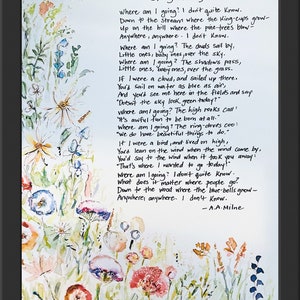 Where am I going? I don't quite know.
Down to the stream where the king-cups grow-
Up on the hill where the pine-trees blow-
Anywhere, anywhere. I don't know.
Where am I going? The clouds sail by,
Little ones, baby ones, over the sky.
Where am I going? The shadows pass,
Little ones, baby ones, over the grass.
If I were a cloud, and sailed up there,
You'd sail on water as blue as air,
And you'd see me here in the fields and say:
"Doesn't the sky look green today?"
Where am I going? The high rooks call:
"It's awful fun to be born at all."
Where am I going? The ring-doves coo:
"We do have beautiful things to do."
If I were a bird, and lived on high,
You'd lean on the wind when the wind came by,
You'd say to the wind when it took you away:
"That's where I wanted to go today!"
Where am I going? I don't quite know.
What does it matter where people go?
Down to the wood where the blue-bells grow-
Anywhere, anywhere. I don't know.
- A.A. Milne